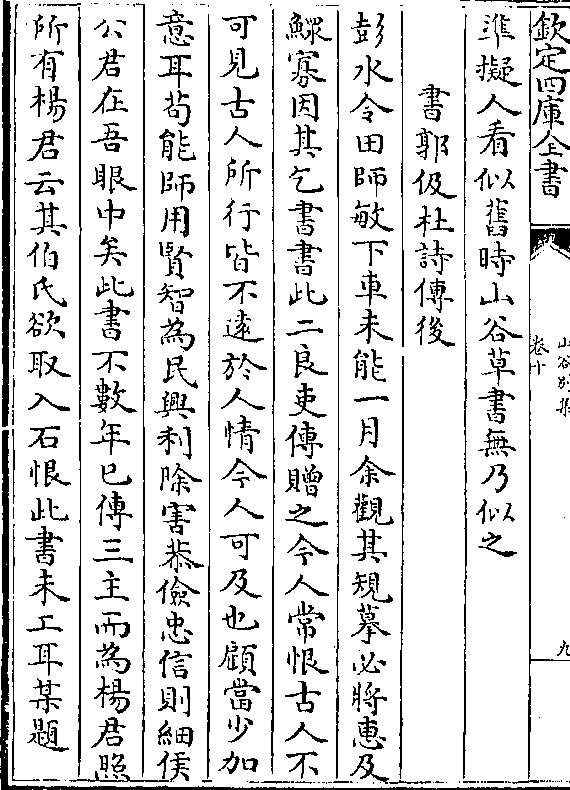 欽定四庫全書
山谷別集
卷十
九
準擬人看似舊時山谷草書無乃似之
書郭伋杜詩傳後
彭水令田師敏下車未能一月余觀其規摹必將惠及
鰥寡因其乞書書此二良吏傳贈之今人常恨古人不
可見古人所行皆不遠於人情今人可及也顧當少加
意耳苟能師用賢智為民興利除害恭儉忠信則細侯
公君在吾眼中矣此書不數年已傳三主而為楊君照
所有楊君云其伯氏欲取入石恨此書未工耳某題